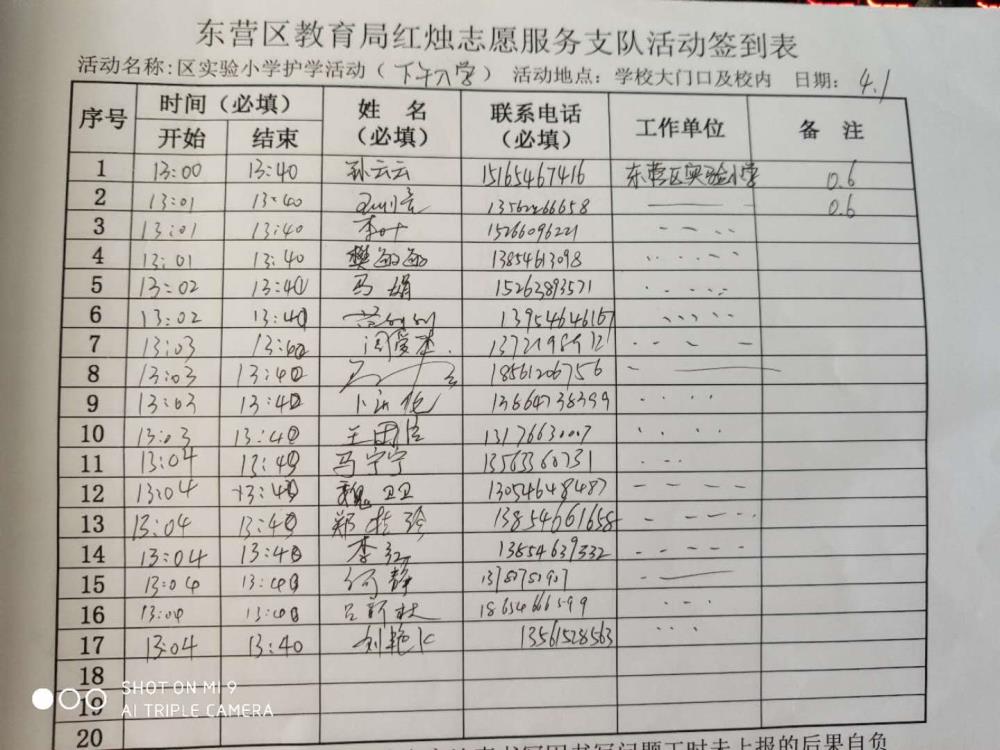 东营区教育局红烛志愿服务支队活动签到表
活动名称:区实验小学护学活动（下午入学） 活动地点：学校大门口及校内 日期： 4.1
序号 时间（必填） 姓 名（必填） 联系电话（必填） 工作单位 备 注
开始 结束
1 13:00 13:40 孙云云 15165467416 东营区实验小学 0.6
2 13:01 13:40 0.6
3 13:01 13:40 李叶 15266096221
4 13:01 13:40 樊敏敏 13854613098
5 13:02 13:40 马娟 15263893571
6 13:02 13:40 13954646167
7 13:03 闫爱杰
8 13:03 13:40 18561206756
9 13:03 13:40 13864738399
10 13:03 13:40 王田佳
11 13:04 13:40 马宁宁 13563360731
12 13:04 13:40 魏卫卫 13054648487
13 13:04 13:40 郑桂玲 13854661658
14 13:04 13:40 李红 13854639332
15 13:04 13:40 何静
16 13:04 13:40 18654666599
17 13:04 13:40 刘艳 13561528563
18
19
20
SHOT ON MI 9
AI TRIPLE CAMERA